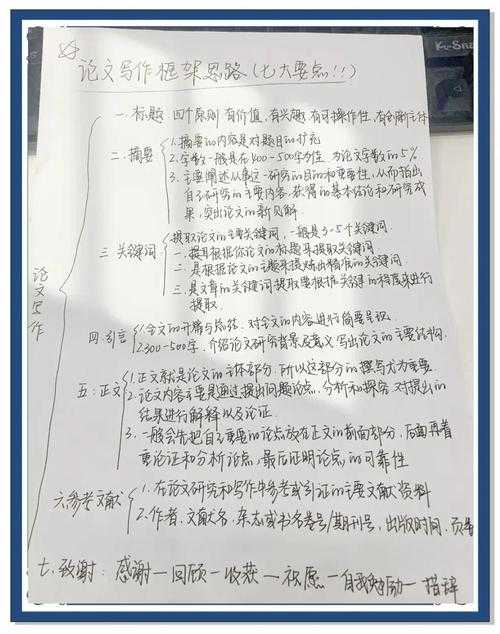 论文写作框架思路（七大要点！！）
论文写作
一. 标题 四个原则 有价值, 有兴趣 有可操作性, 有创新主体
二. 摘要
1. 摘要的内容是对题目的扩充
2. 字数一般是在400-500字为位 为论文字数的5%
3. 主要阐述从事这一研究的目的和重要性, 从而指出
自己研究的主要内容, 获得的基本结论和研究成
果, 突出论文的新见解
三 关键词
提取论文的主要关键词, 一般是3-5个关键词
一. 提取根据你论文的标题来提取关键词
二. 是根据论文的主题来提炼出精准的关键词
三. 是文章的关键词提取要根据关键的程度来进行
提取.
四: 引言
1. 全文的开篇与总结. 对全文的内容进行简要呈现.
2. 300-500字. 介绍论文研究背景及意义, 写出论文的主要结构.
五: 正文
1. 正文就是论文的主体部分, 所以这部分的撰写尤为重要.
2. 论文内容主要是通过提出问题论点, 分析和探究. 对提出的
结果进行解释以及论证.
3. 一般会先把自己主要的论点放在正文的前面部分, 后面再着
重论证和分析论点, 最后证明论点的可靠性
六 参考文献
1. 在论文研究和写作中参考或引证的主要文献资料
2. 作者. 文献名, 杂志或书名卷号/期刊号, 出版时间. 页
七. 致谢: 感谢一回顾一收获一祝愿一自我勉励一措辞